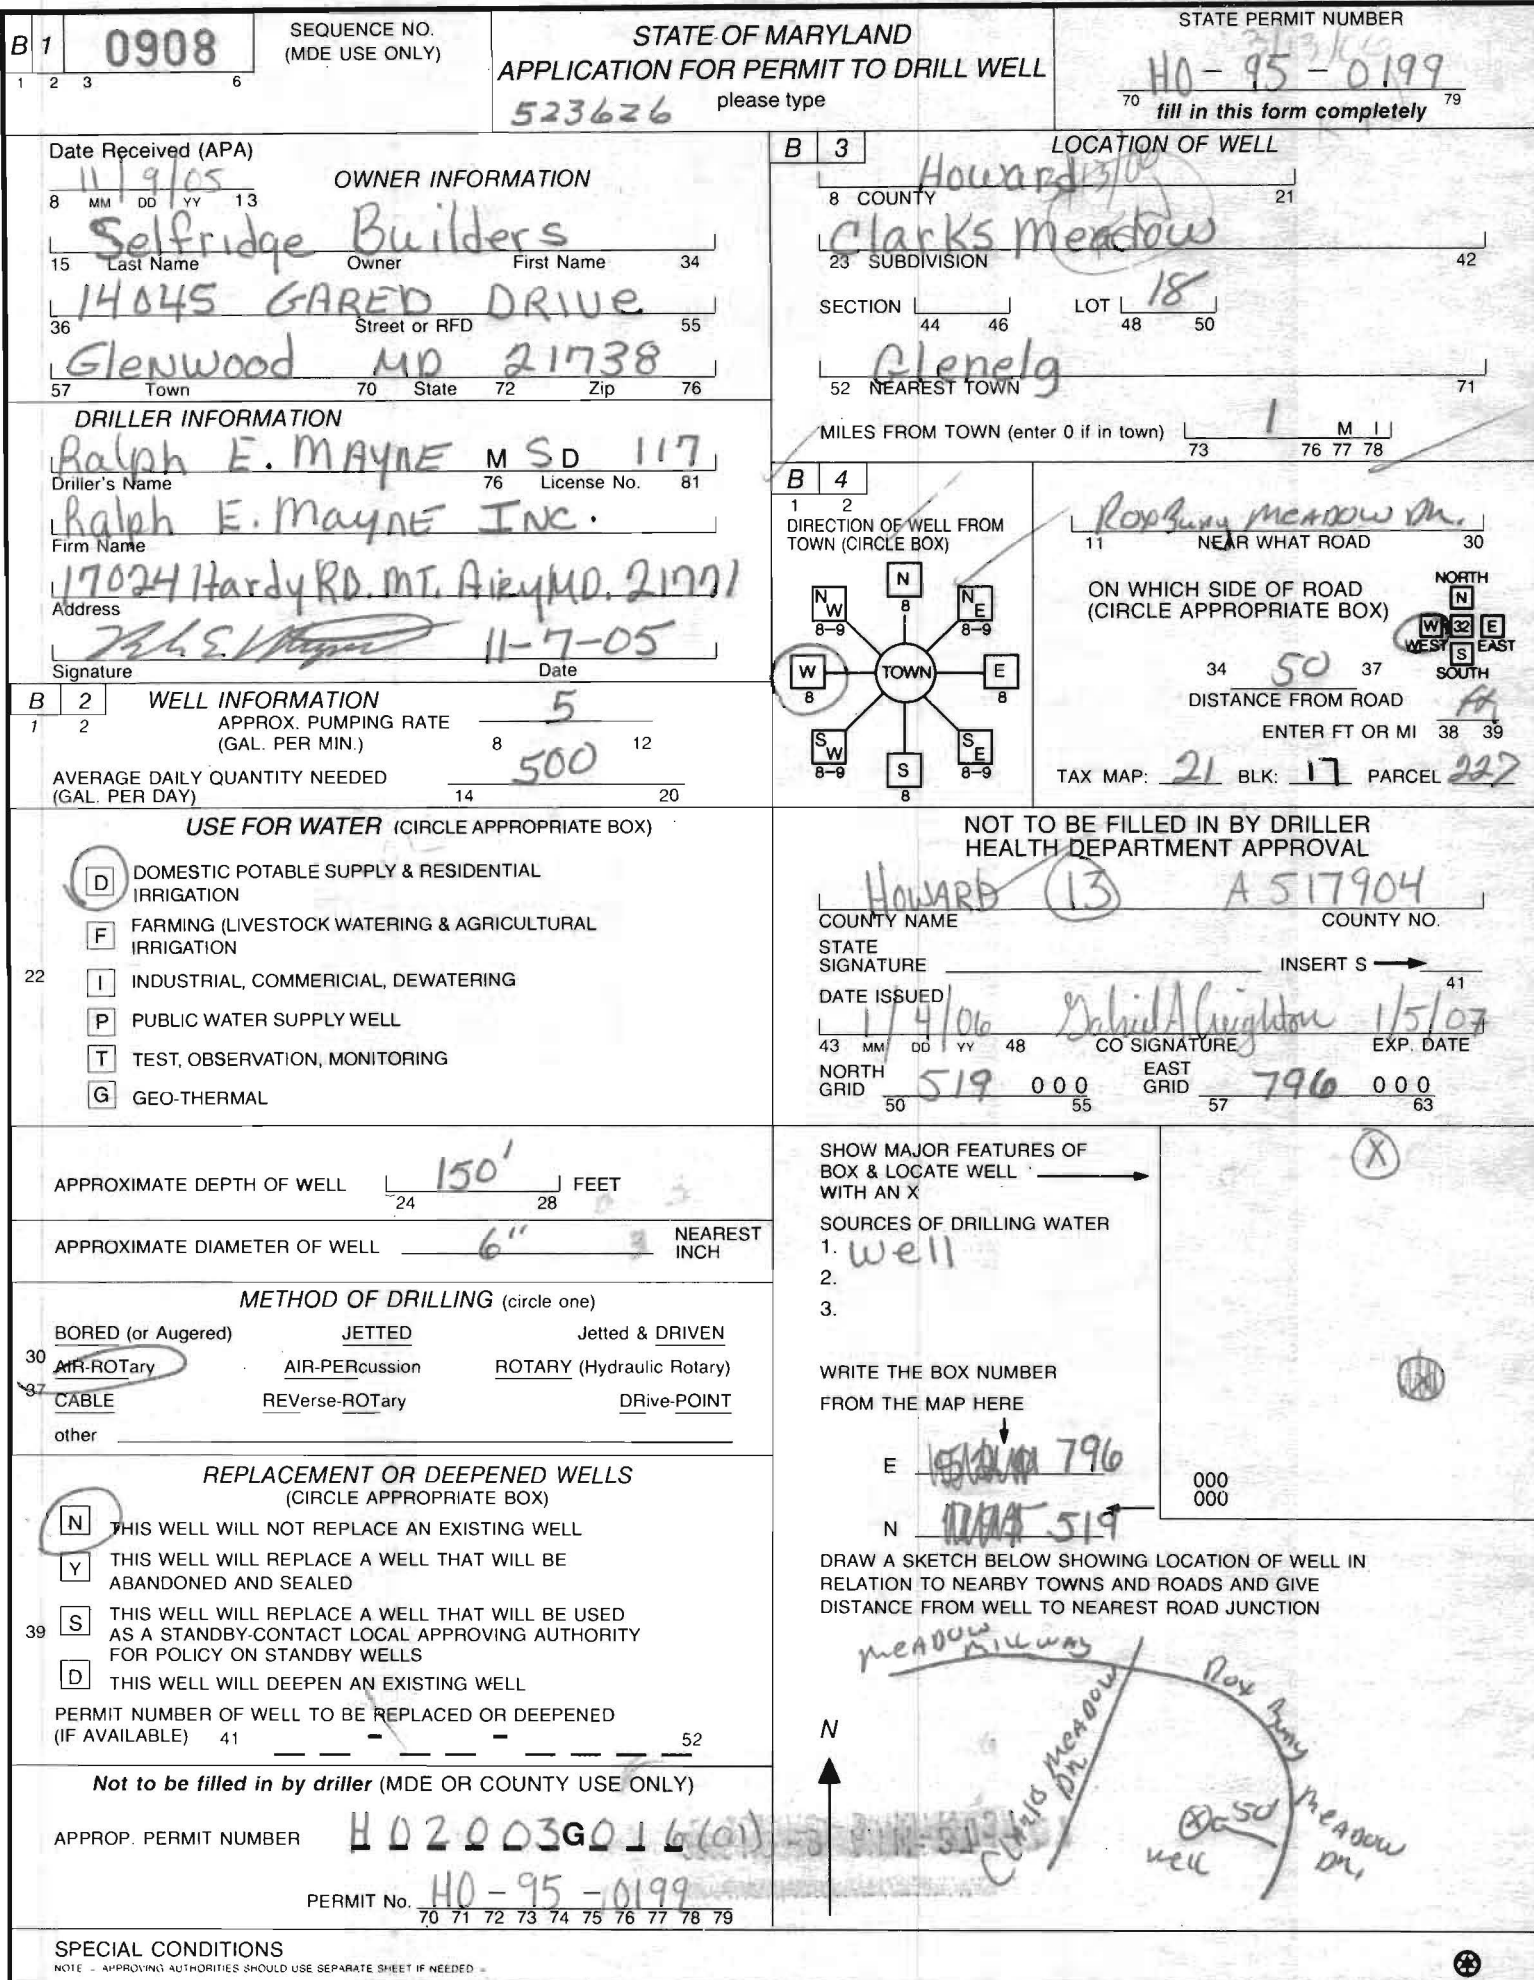 B 1 0908
1 2 3 6
SEQUENCE NO.
(MDE USE ONLY)
STATE OF MARYLAND
APPLICATION FOR PERMIT TO DRILL WELL
523626 please type
STATE PERMIT NUMBER
HO-95-0199
70 fill in this form completely 79
Date Received (APA)
11/9/05
8 MM DD YY 13
OWNER INFORMATION
Selfridge Builders
15 Last Name Owner First Name 34
14045 GARED DRIVE
36 Street or RFD 55
Glenwood MD 21738
57 Town 70 State 72 Zip 76
DRILLER INFORMATION
Ralph E. MAYNE M S D 117
Driller's Name 76 License No. 81
Ralph E. Mayne INC.
Firm Name
17024 Hardy RD. MT. Airy MD. 21771
Address
11-7-05
Signature Date
B 2 WELL INFORMATION
1 2
APPROX. PUMPING RATE 5
(GAL. PER MIN.) 8 12
AVERAGE DAILY QUANTITY NEEDED 500
(GAL. PER DAY) 14 20
USE FOR WATER (CIRCLE APPROPRIATE BOX)
D DOMESTIC POTABLE SUPPLY & RESIDENTIAL
IRRIGATION
F FARMING (LIVESTOCK WATERING & AGRICULTURAL
IRRIGATION
22 I INDUSTRIAL, COMMERICIAL, DEWATERING
P PUBLIC WATER SUPPLY WELL
T TEST, OBSERVATION, MONITORING
G GEO-THERMAL
APPROXIMATE DEPTH OF WELL 150' FEET
24 28
APPROXIMATE DIAMETER OF WELL 6" NEAREST
INCH
METHOD OF DRILLING (circle one)
BORED (or Augered) JETTED Jetted & DRIVEN
30 AIR-ROTary AIR-PERcussion ROTARY (Hydraulic Rotary)
37 CABLE REVerse-ROTary DRive-POINT
other
REPLACEMENT OR DEEPENED WELLS
(CIRCLE APPROPRIATE BOX)
N THIS WELL WILL NOT REPLACE AN EXISTING WELL
Y THIS WELL WILL REPLACE A WELL THAT WILL BE
ABANDONED AND SEALED
39 S THIS WELL WILL REPLACE A WELL THAT WILL BE USED
AS A STANDBY-CONTACT LOCAL APPROVING AUTHORITY
FOR POLICY ON STANDBY WELLS
D THIS WELL WILL DEEPEN AN EXISTING WELL
PERMIT NUMBER OF WELL TO BE REPLACED OR DEEPENED
(IF AVAILABLE) 41 - - 52
Not to be filled in by driller (MDE OR COUNTY USE ONLY)
APPROP. PERMIT NUMBER HO2003G016(01)
PERMIT No. HO-95-0199
70 71 72 73 74 75 76 77 78 79
SPECIAL CONDITIONS
NOTE - APPROVING AUTHORITIES SHOULD USE SEPARATE SHEET IF NEEDED -
B 3 LOCATION OF WELL
Howard
8 COUNTY 21
Clarks Meadow
23 SUBDIVISION 42
SECTION LOT 18
44 46 48 50
Glenelg
52 NEAREST TOWN 71
MILES FROM TOWN (enter 0 if in town) 1 M I
73 76 77 78
B 4
1 2
DIRECTION OF WELL FROM
TOWN (CIRCLE BOX)
N
8
NW
8-9
NE
8-9
W
8
TOWN
E
8
SW
8-9
S
8
SE
8-9
Roxbury MEADOW Dr.
11 NEAR WHAT ROAD 30
ON WHICH SIDE OF ROAD
(CIRCLE APPROPRIATE BOX)
NORTH
N
W 32 E
WEST EAST
S
SOUTH
34 50 37
DISTANCE FROM ROAD
ft
ENTER FT OR MI 38 39
TAX MAP: 21 BLK: 17 PARCEL 227
NOT TO BE FILLED IN BY DRILLER
HEALTH DEPARTMENT APPROVAL
HOWARD 13 A 517904
COUNTY NAME COUNTY NO.
STATE
SIGNATURE INSERT S
41
DATE ISSUED
1/4/06 Gabriel A Creighton 1/5/07
43 MM DD YY 48 CO SIGNATURE EXP. DATE
NORTH
GRID 519 000
50 55
EAST
GRID 796 000
57 63
SHOW MAJOR FEATURES OF
BOX & LOCATE WELL
WITH AN X
X
SOURCES OF DRILLING WATER
1. Well
2.
3.
WRITE THE BOX NUMBER
FROM THE MAP HERE
E 796
000
000
N 519
DRAW A SKETCH BELOW SHOWING LOCATION OF WELL IN
RELATION TO NEARBY TOWNS AND ROADS AND GIVE
DISTANCE FROM WELL TO NEAREST ROAD JUNCTION
MEADOW
Rox Bury
MEADOW
Dr.
MEADOW
DR.
N
X 50
well